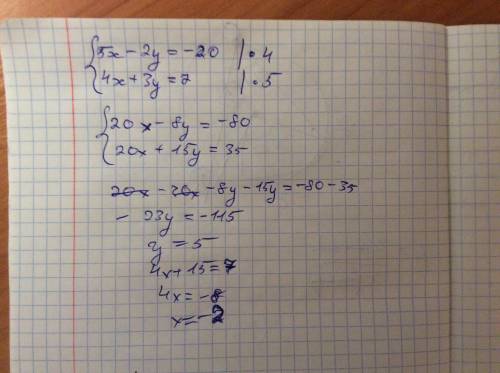 5x - 2y = -20 | · 4
4x + 3y = 7 | · 5
20x - 8y = -80
20x + 15y = 35
20x - 20x - 8y - 15y = -80 - 35
- 23y = -115
y = 5
4x + 15 = 7
4x = -8
x = -2